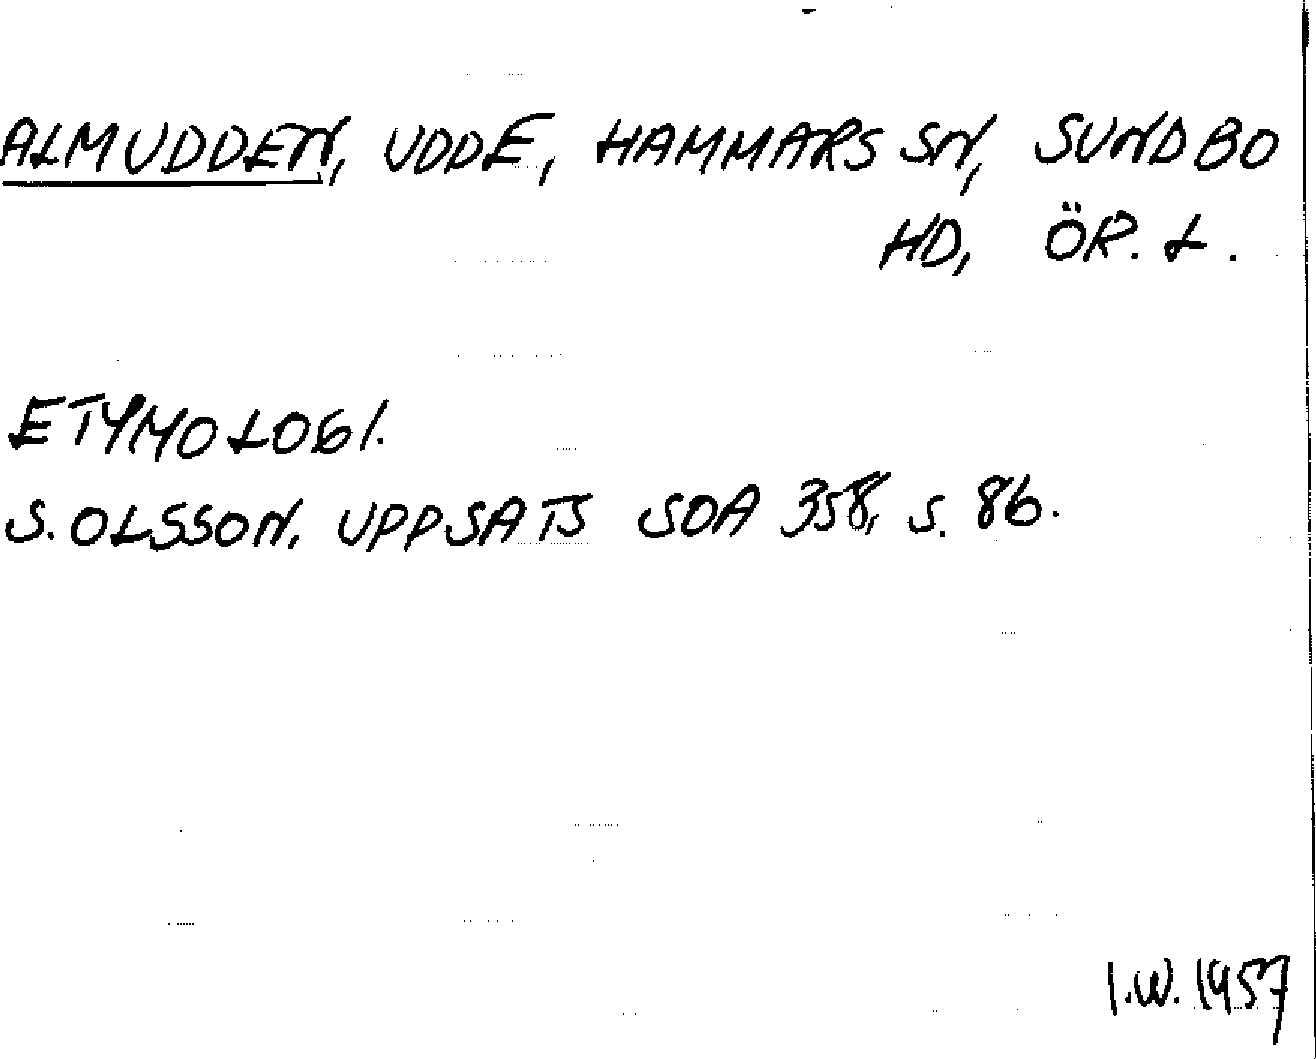 ALMUDDEN, UDDE, HAMMARS SN, SUNDBO
HD, ÖR. L.
ETYMOLOGI.
S. OLSSON, UPPSATS SOA 358, s. 86.
I.W. 1957